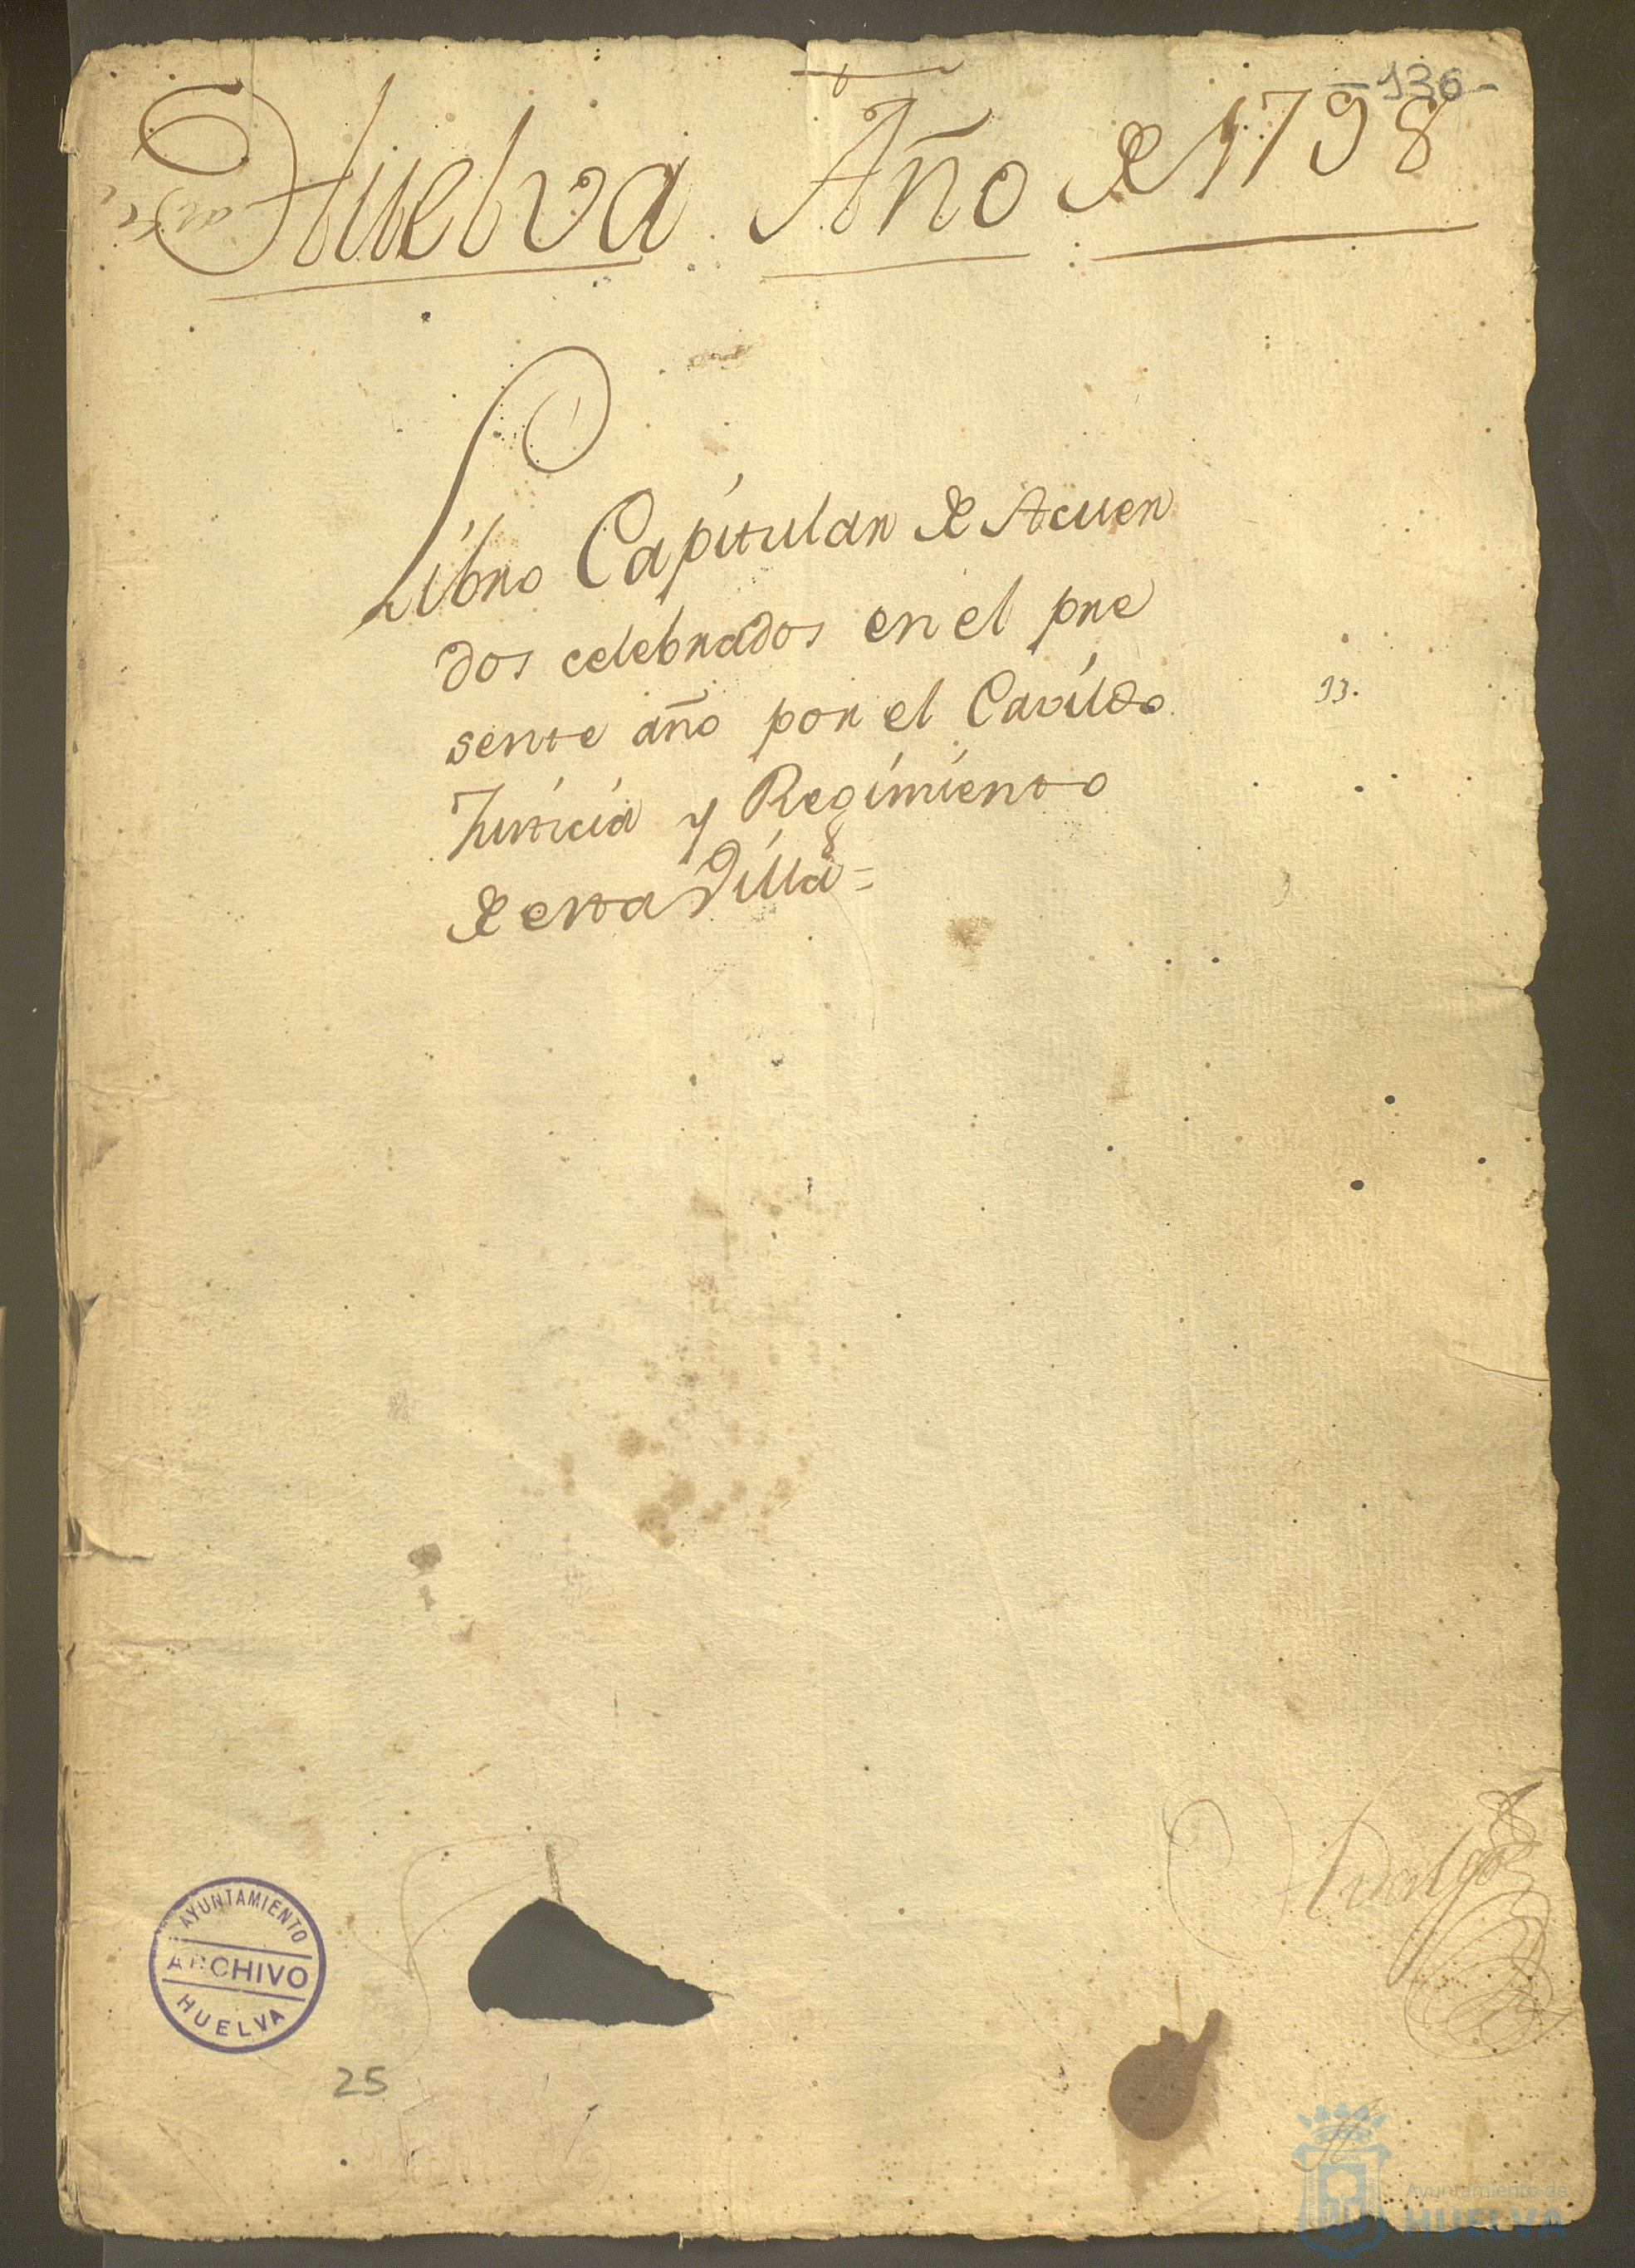 -136-
Huelva Año de 1798
Libro Capitular de Acuer
dos celebrados en el pre
sente año por el Cavildo
13.
Justicia y Regimiento
de esta Villa =
Hidalgo
AYUNTAMIENTO
ARCHIVO
HUELVA
25
Ayuntamiento de
HUELVA